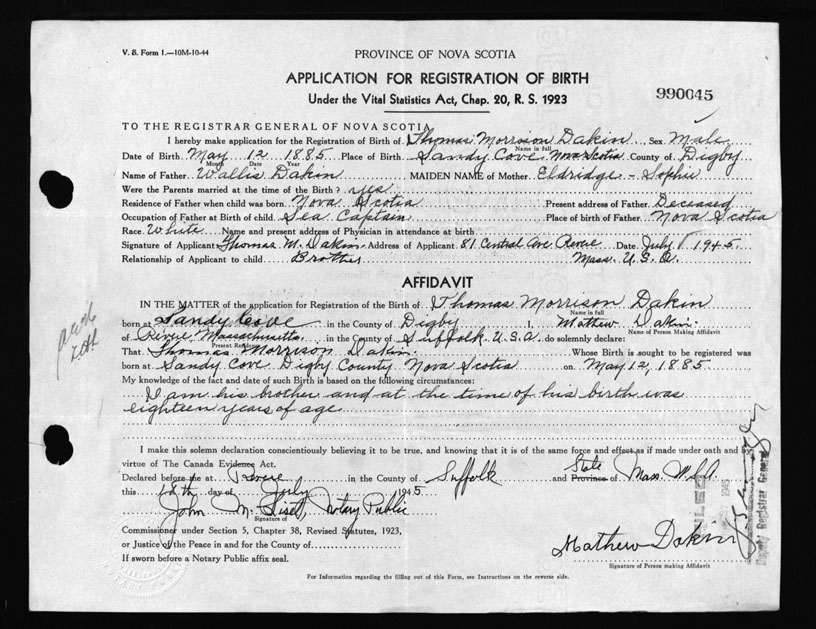 V. S. Form 1.—10M-10-44
PROVINCE OF NOVA SCOTIA
APPLICATION FOR REGISTRATION OF BIRTH
Under the Vital Statistics Act, Chap. 20, R. S. 1923
990045
TO THE REGISTRAR GENERAL OF NOVA SCOTIA
I hereby make application for the Registration of Birth of Thomas Morrison Dakin Sex Male
Name in full
Date of Birth May 12 1885 Place of Birth Sandy Cove Nova Scotia County of Digby
Month Date Year
Name of Father Wallis Dakin MAIDEN NAME of Mother Eldridge - Sophie
Were the Parents married at the time of the Birth? yes
Residence of Father when child was born Nova Scotia Present address of Father Deceased
Occupation of Father at Birth of child Sea Captain Place of birth of Father Nova Scotia
Race White Name and present address of Physician in attendance at birth
Signature of Applicant Thomas M. Dakin Address of Applicant 81 Central Ave Revere Date July 1945
Relationship of Applicant to child Brother Mass. U.S.A.
AFFIDAVIT
IN THE MATTER of the application for Registration of the Birth of Thomas Morrison Dakin
Name in full
born at Sandy Cove in the County of Digby I, Mathew Dakin
Name of Person Making Affidavit
of Revere Massachusetts in the County of Suffolk U.S.A. do solemnly declare:
Present Residence
That Thomas Morrison Dakin Whose Birth is sought to be registered was
born at Sandy Cove Digby County Nova Scotia on May 12, 1885
My knowledge of the fact and date of such Birth is based on the following circumstances:
I am his brother and at the time of his birth was
eighteen years of age
I make this solemn declaration conscientiously believing it to be true, and knowing that it is of the same force and effect as if made under oath and by
virtue of The Canada Evidence Act.
Declared before me at Revere in the County of Suffolk and State Province of Mass. U.S.A.
this 18th day of July 1945
John M. Notary Public
Signature of
Commissioner under Section 5, Chapter 38, Revised Statutes, 1923,
or Justice of the Peace in and for the County of
If sworn before a Notary Public affix seal.
Mathew Dakin
Signature of Person making Affidavit
For Information regarding the filling out of this Form, see Instructions on the reverse side.
FILED
1945
Deputy Registrar General